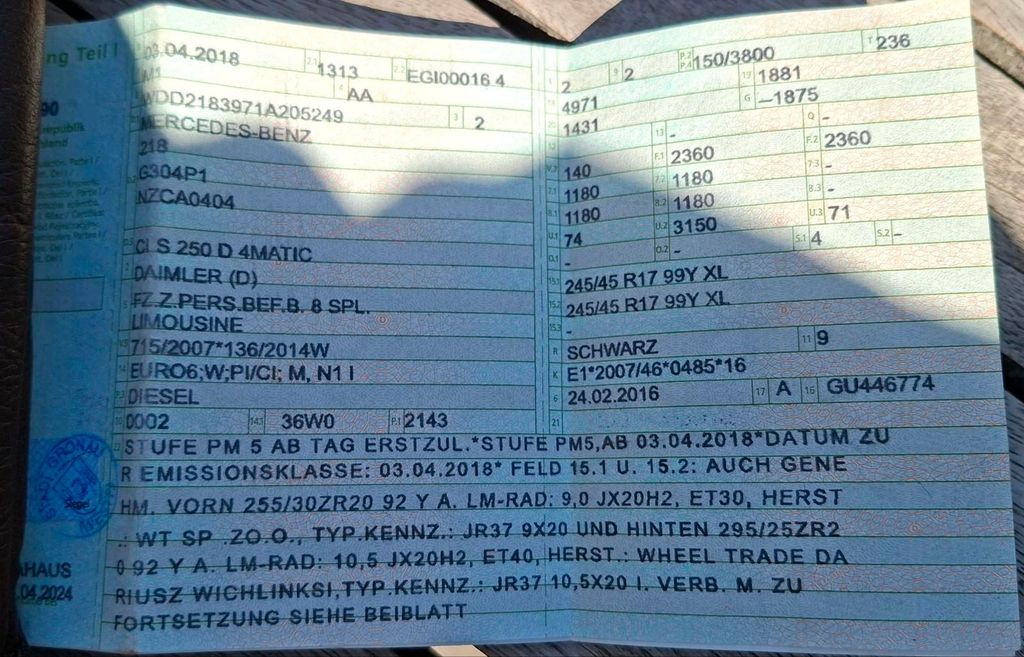 ng Teil I
03.04.2018 2.1 1313 2.2 EGI00016 4
M1 AA
WDD2183971A205249 3 2
MERCEDES-BENZ
218
G304P1
NZCA0404
CLS 250 D 4MATIC
DAIMLER (D)
FZ.Z.PERS.BEF.B. 8 SPL.
LIMOUSINE
715/2007*136/2014W
EURO6;W;PI/CI; M, N1 I
DIESEL
0002 14.1 36W0 P.1 2143
2 9 2 P.2 P.4 150/3800 T 236
4971 19 1881
1431 G –1875
13 - Q -
140 F.1 2360 F.2 2360
1180 7.2 1180 7.3 -
1180 8.2 1180 8.3 -
74 U.2 3150 U.3 71
- O.2 - S.1 4 S.2 -
15.1 245/45 R17 99Y XL
15.2 245/45 R17 99Y XL
15.3 -
R SCHWARZ 11 9
K E1*2007/46*0485*16
6 24.02.2016 17 A 16 GU446774
21
22 STUFE PM 5 AB TAG ERSTZUL.*STUFE PM5,AB 03.04.2018*DATUM ZU
R EMISSIONSKLASSE: 03.04.2018* FELD 15.1 U. 15.2: AUCH GENE
HM. VORN 255/30ZR20 92 Y A. LM-RAD: 9,0 JX20H2, ET30, HERST
.: WT SP .ZO.O., TYP.KENNZ.: JR37 9X20 UND HINTEN 295/25ZR2
0 92 Y A. LM-RAD: 10,5 JX20H2, ET40, HERST.: WHEEL TRADE DA
RIUSZ WICHLINKSI,TYP.KENNZ.: JR37 10,5X20 I. VERB. M. ZU
FORTSETZUNG SIEHE BEIBLATT
AHAUS
.04.2024